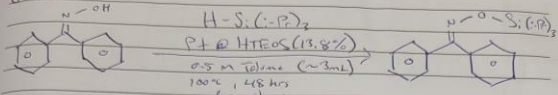 N OH
H-Si(i-Pr)₃
Pt @ HTEOS (13.8%)
0.5 m Toluene (~3mL)
100°C, 48 hrs
N-O-Si(i-Pr)₃